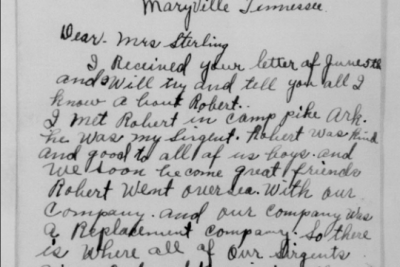 Maryville Tennessee
Dear. Mrs Sterling
I Recieved your letter of June 5th
and Will try and tell you all I
know a bout Robert..
I met Robert in camp pike Ark.
he was my Sirgent. Robert was Kind
and good to all of us boys. and
we soon become great friends
Robert Went over sea. With our
Company. and our Company was
a Replacement company. So there
is Where all of our Sirgents